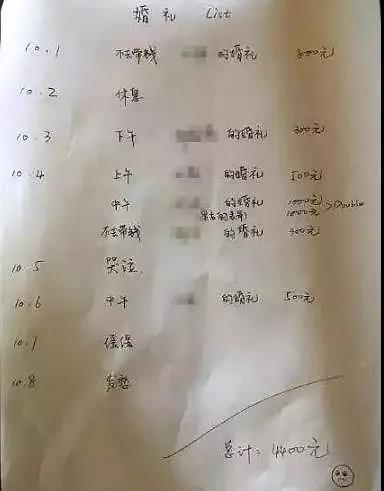 婚礼 List
10.1 不去带钱 的婚礼 300元
10.2 休息
10.3 下午 的婚礼 300元
10.4 上午 的婚礼 500元
中午 的婚礼 1000元
1000元 >Double
不去带钱 的婚礼 300元
10.5 哭泣.
10.6 中午 的婚礼 500元
10.7 缓缓
10.8 发愁
总计: 4400元